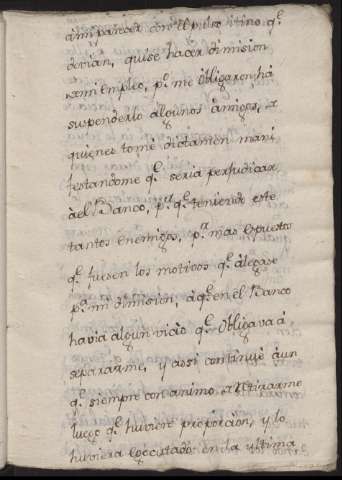 á mi parecer con el pulso i tino q.e
devian, quise hacer dimision
de mi empleo, p.o me obligaron há
suspenderlo algunos Amigos, de
quienes tomé dictamen mani
festandome q.e seria perjudicar
ael Banco, p.r q.e teniendo este
tantos enemigos, p.r mas Expuestos
q.e fuesen los motivos q.e álegase
p.a mi dimision, á q.e en el Banco
havia algun vicio q.e Obligava á
separarme, y assi continué áun
q.e siempre con animo de Retirarme
luego q.e huviese proporcion, y lo
huviera Egecutado en la yltima